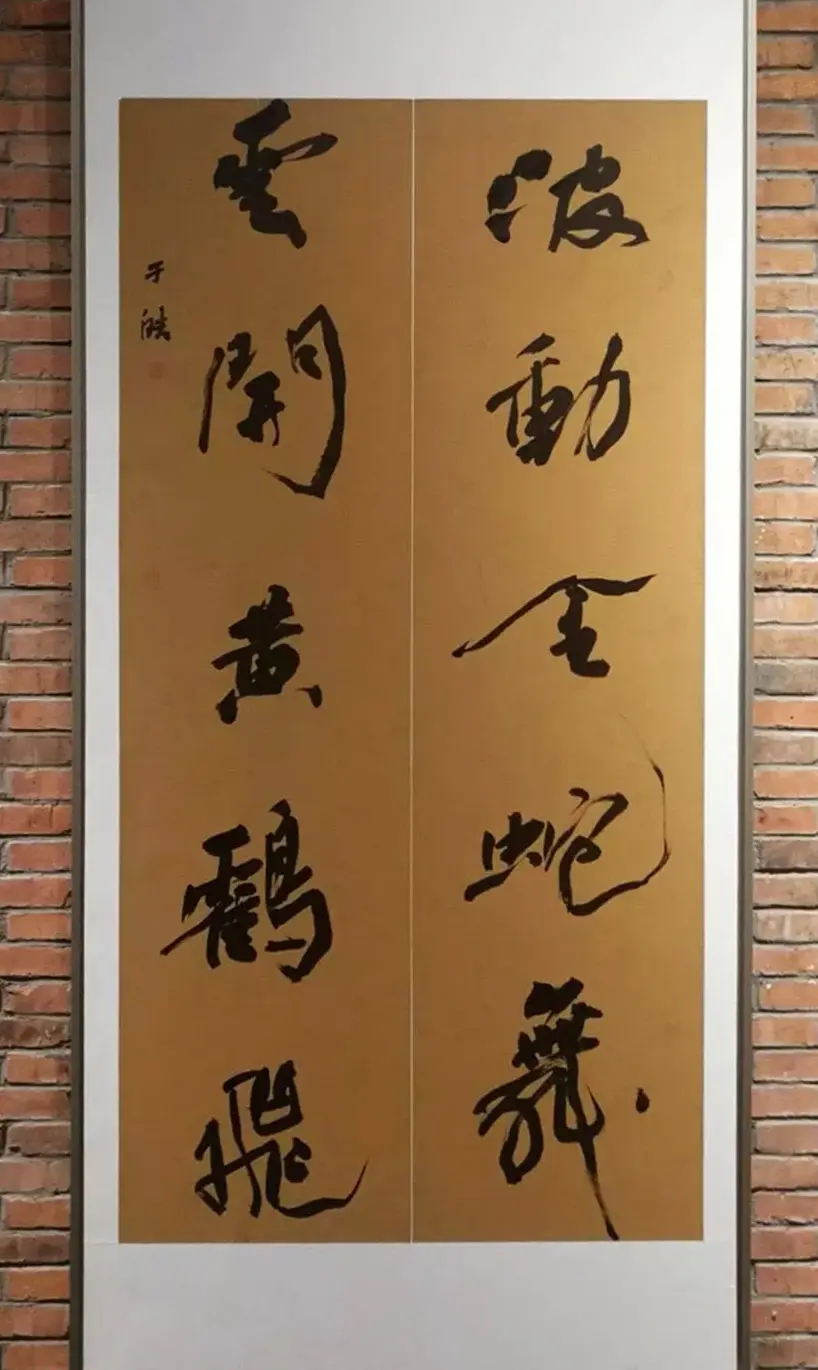 波動金蛇舞
雲開黄鶴飛
于皓